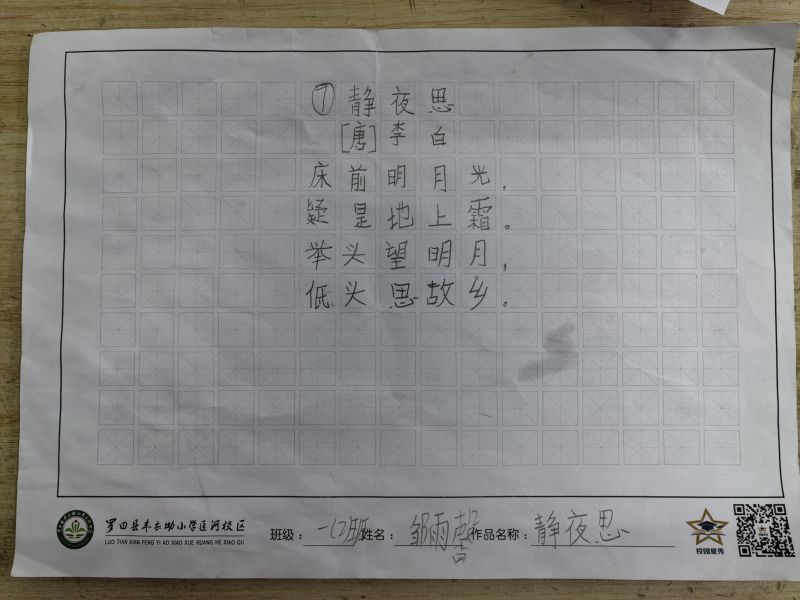 ⑦静夜思
[唐]李白
床前明月光，
疑是地上霜。
举头望明月，
低头思故乡。
罗田县丰衣坳小学匡河校区
LUO TIAN XIAN FENG YI AO XIAO XUE KUANG HE XIAO QU
班级：一(2)班 姓名：邹雨馨 作品名称：静夜思
校园星秀